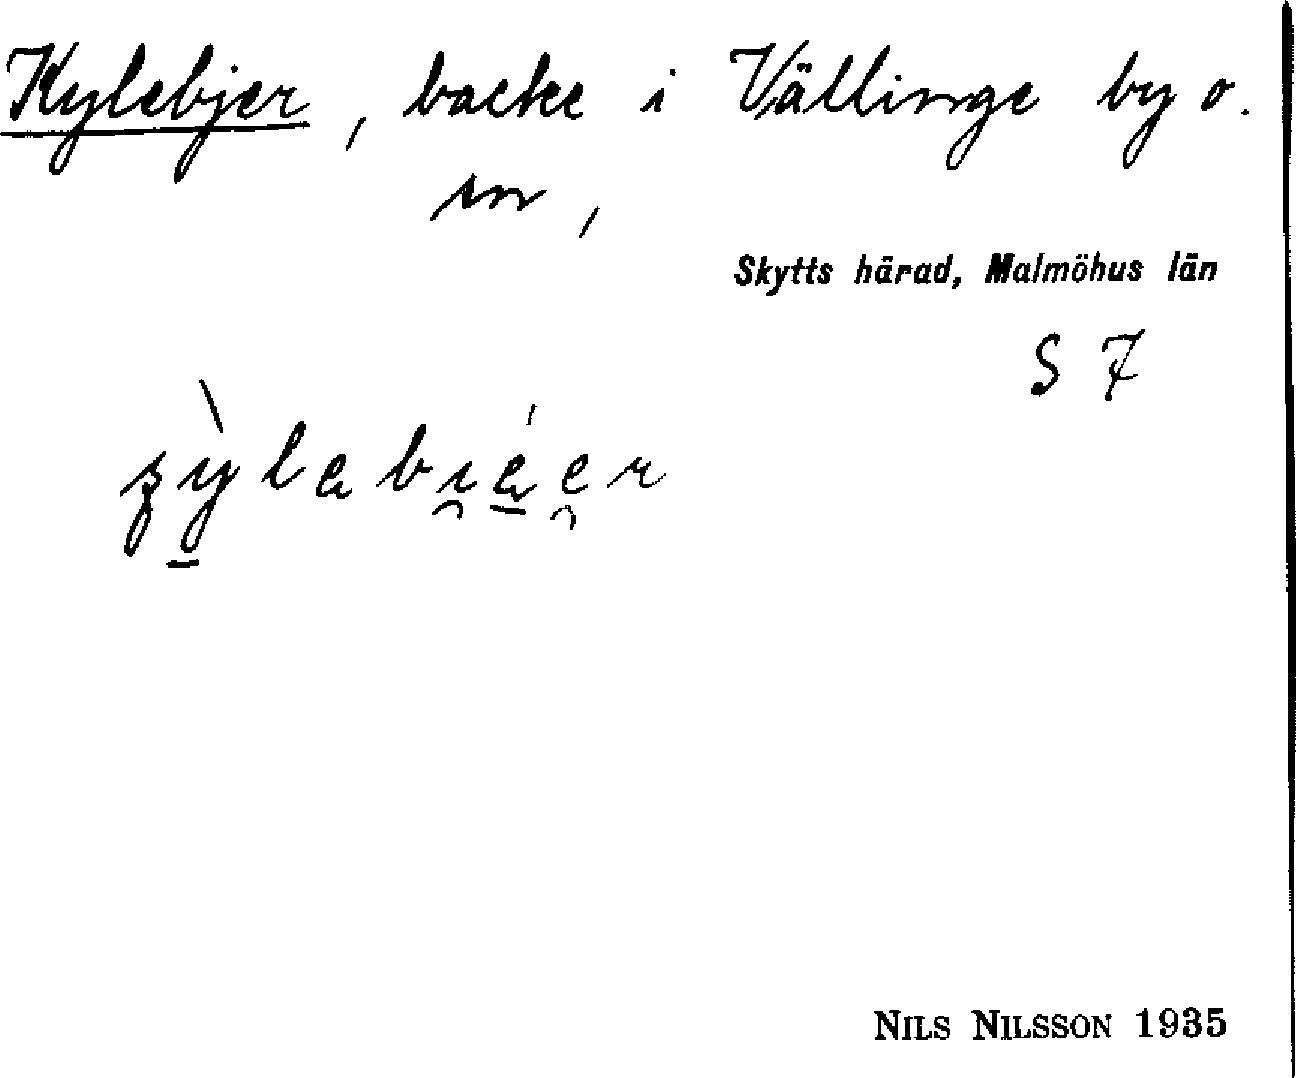 Kylebjer, backe i Vällinge by o.
sn,
Skytts härad, Malmöhus län
S 7
NILS NILSSON 1935